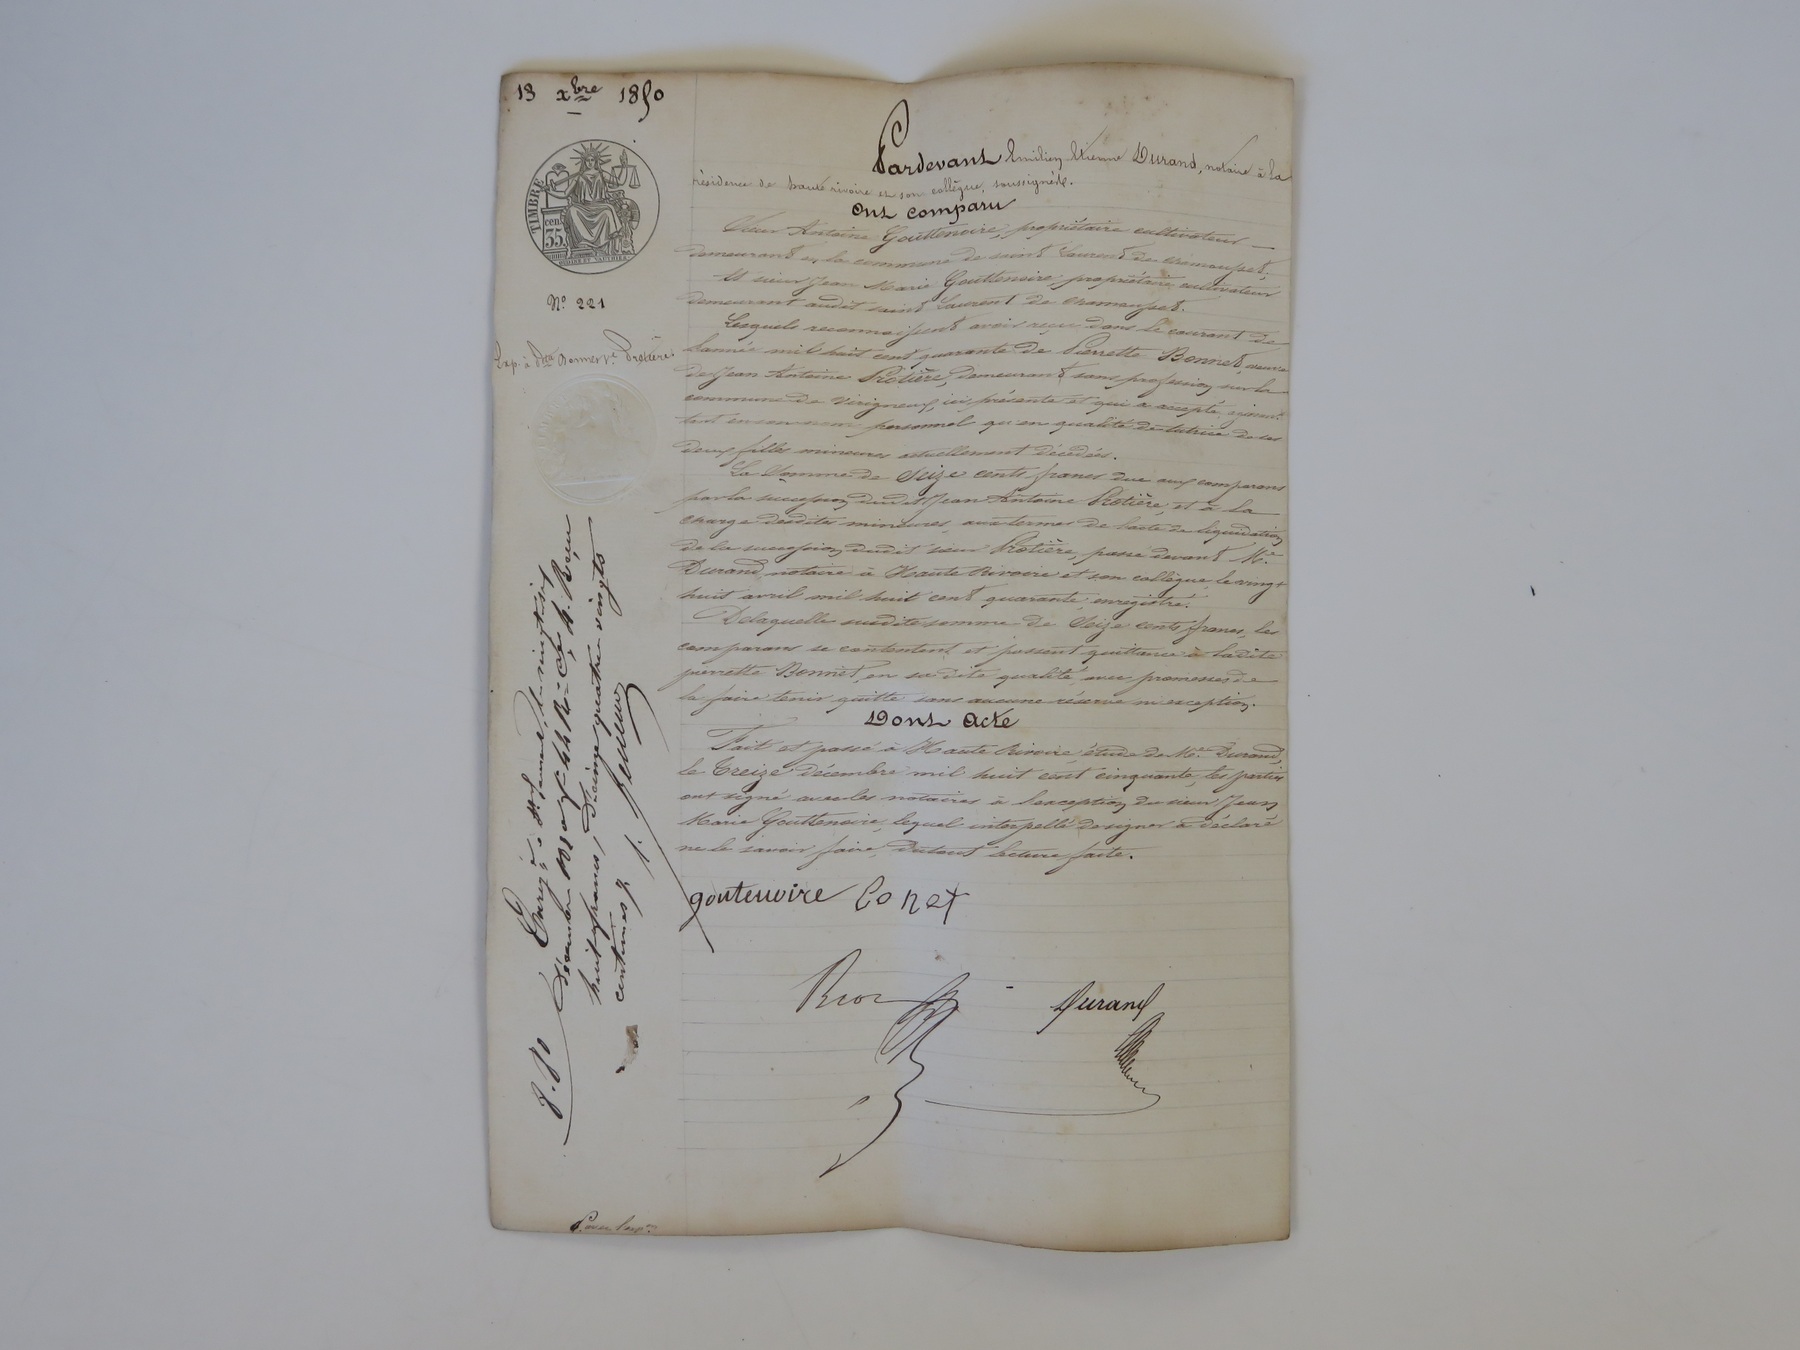 13 xbre 1850
TIMBRE
cen.
35.
Nº 221
Exp. à Ptte Bonnet Ve Protière.
Pardevant Emilien Etienne Durand, notaire à la
résidence de haute rivoire et son collègue, soussignés.
Ont comparu
Sieur Antoine Gouttenoire, propriétaire cultivateur
demeurant en la commune de saint Laurent de chamousset,
Et sieur Jean Marie Gouttenoire, propriétaire cultivateur
demeurant audit saint Laurent de chamousset.
Lesquels reconnaissent avoir reçu dans le courant de
l'année mil huit cent quarante de Pierrette Bonnet, veuve
de Jean Antoine Protière, demeurant sans profession sur la
commune de virigneux, ici présente et qui a accepté,
tant en son nom personnel qu'en qualité de tutrice de ses
deux filles mineures actuellement décédées.
La Somme de Seize cents francs due aux comparans
par la succession dudit Jean Antoine Protière, et à la
charge desdites mineures, aux termes de l'acte de liquidation
de la succession dudit sieur Protière, passé devant Me
Durand notaire à Haute Rivoire et son collègue, le vingt
huit avril mil huit cent quarante, enregistré.
De laquelle susdite somme de Seize cents francs, les
comparans se contentent et passent quittance à ladite
pierrette Bonnet, en sa dite qualité, avec promesse de
la faire tenir quitte sans aucune réserve ni exception.
Dont Acte
Fait et passé à Haute Rivoire, étude de Me Durand,
le treize décembre mil huit cent cinquante, les parties
ont signé avec les notaires à l'exception du sieur Jean
Marie Gouttenoire, lequel interpellé de signer a déclaré
ne le savoir faire, du tout lecture faite.
goutenoire bonet
Durand
Enregé à St le vingt six
décembre 1850 fº 44 Rº Cse 4. Reçu
huit francs, dixième quatre vingts
centimes
8.80